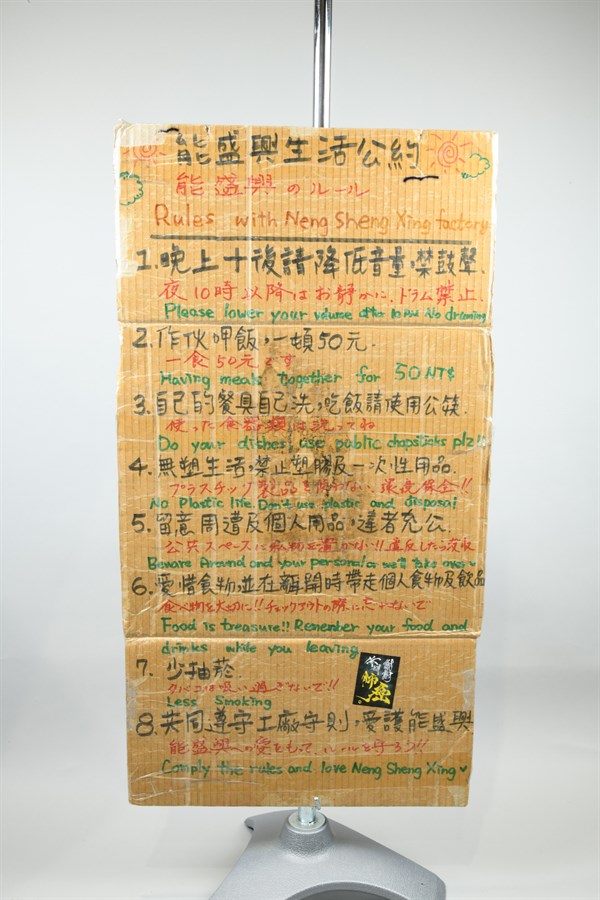 能盛興生活公約
能盛興のルール
Rules with Neng Sheng Xing factory
1. 晚上十後請降低音量,禁鼓聲.
夜10時以降はお静かに.ドラム禁止.
Please lower your volume after 10 PM No druming
2. 作伙呷飯,一頓50元.
一食50元です
Having meals together for 50NT$
3. 自己的餐具自己洗,吃飯請使用公筷.
使った食器類は洗ってね
Do your dishes, use public chopsticks plz!!
4. 無塑生活,禁止塑膠及一次性用品.
プラスチック製品を使わない、環境保全!!
No Plastic life. Don't use plastic and disposal
5. 留意周遭及個人用品,違者充公.
公共スペースに私物を置かない!!違反したら没収
Beware Around and your personal or we'll take over
6. 愛惜食物,並在離開時帶走個人食物及飲品
食べ物を大切に!!チェックアウトの際に忘れないで
Food is treasure!! Remenber your food and
drinks while you leaving
7. 少抽菸.
タバコを吸い過ぎないで!!
Less Smoking
8. 共同遵守工廠守則,愛護能盛興
能盛興への愛をもって、ルールを守ろう!!
Comply the rules and love Neng Sheng Xing